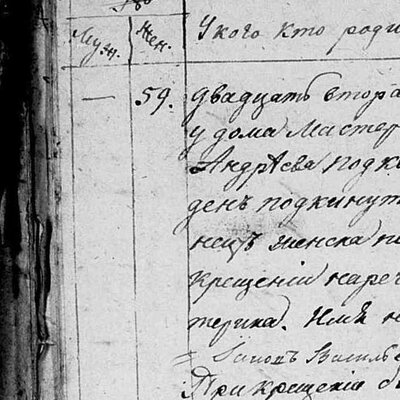 Муж. Жен. У кого кто роди
— 59. двадцать втора
у дома Мастер
Андрѣева подки
денъ подкинут
нецъ женска п
крещеніи нареч
терина. Имѣ н
Васильев
При крещеніи б